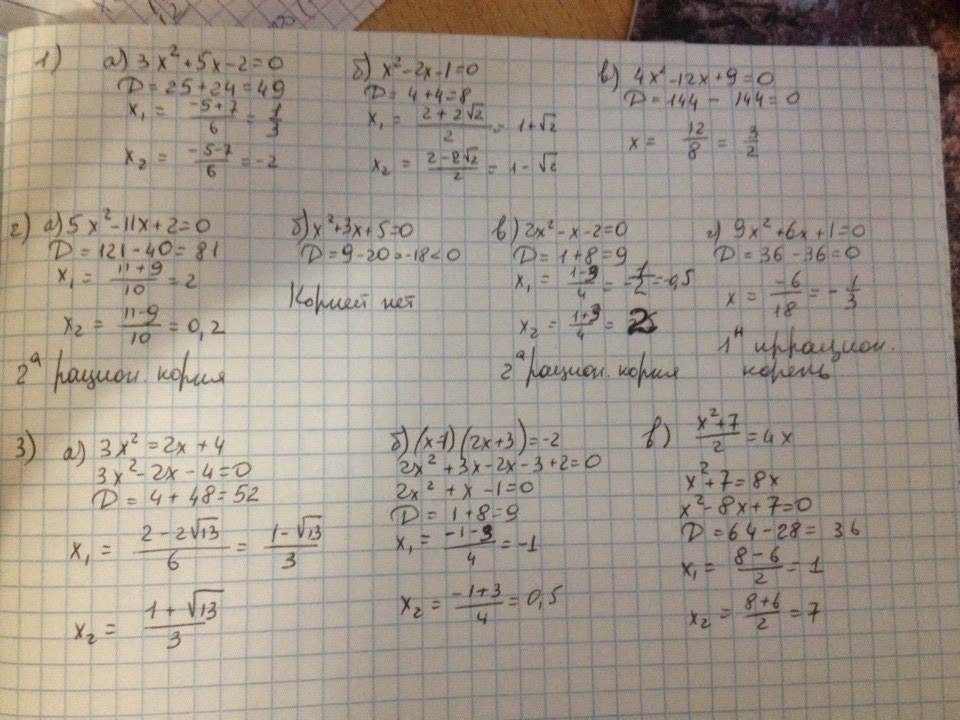 1)
а) 3x² + 5x - 2 = 0
D = 25 + 24 = 49
x₁ = (-5+7)/6 = 1/3
x₂ = (-5-7)/6 = -2
б) x² - 2x - 1 = 0
D = 4 + 4 = 8
x₁ = (2+2√2)/2 = 1+√2
x₂ = (2-2√2)/2 = 1-√2
в) 4x² - 12x + 9 = 0
D = 144 - 144 = 0
x = 12/8 = 3/2
2)
а) 5x² - 11x + 2 = 0
D = 121 - 40 = 81
x₁ = (11+9)/10 = 2
x₂ = (11-9)/10 = 0,2
2ᵃ рацион. корня
б) x² + 3x + 5 = 0
D = 9 - 20 = -18 < 0
Корней нет
в) 2x² - x - 2 = 0
D = 1 + 8 = 9
x₁ = (1-3)/4 = -1/2 = -0,5
x₂ = (1+3)/4 = 2
2ᵃ рацион. корня
г) 9x² + 6x + 1 = 0
D = 36 - 36 = 0
x = -6/18 = -1/3
1ᴴ иррацион.
корень
3)
а) 3x² = 2x + 4
3x² - 2x - 4 = 0
D = 4 + 48 = 52
x₁ = (2-2√13)/6 = (1-√13)/3
x₂ = (1+√13)/3
б) (x-1)(2x+3) = -2
2x² + 3x - 2x - 3 + 2 = 0
2x² + x - 1 = 0
D = 1 + 8 = 9
x₁ = (-1-3)/4 = -1
x₂ = (-1+3)/4 = 0,5
в) (x²+7)/2 = 4x
x² + 7 = 8x
x² - 8x + 7 = 0
D = 64 - 28 = 36
x₁ = (8-6)/2 = 1
x₂ = (8+6)/2 = 7